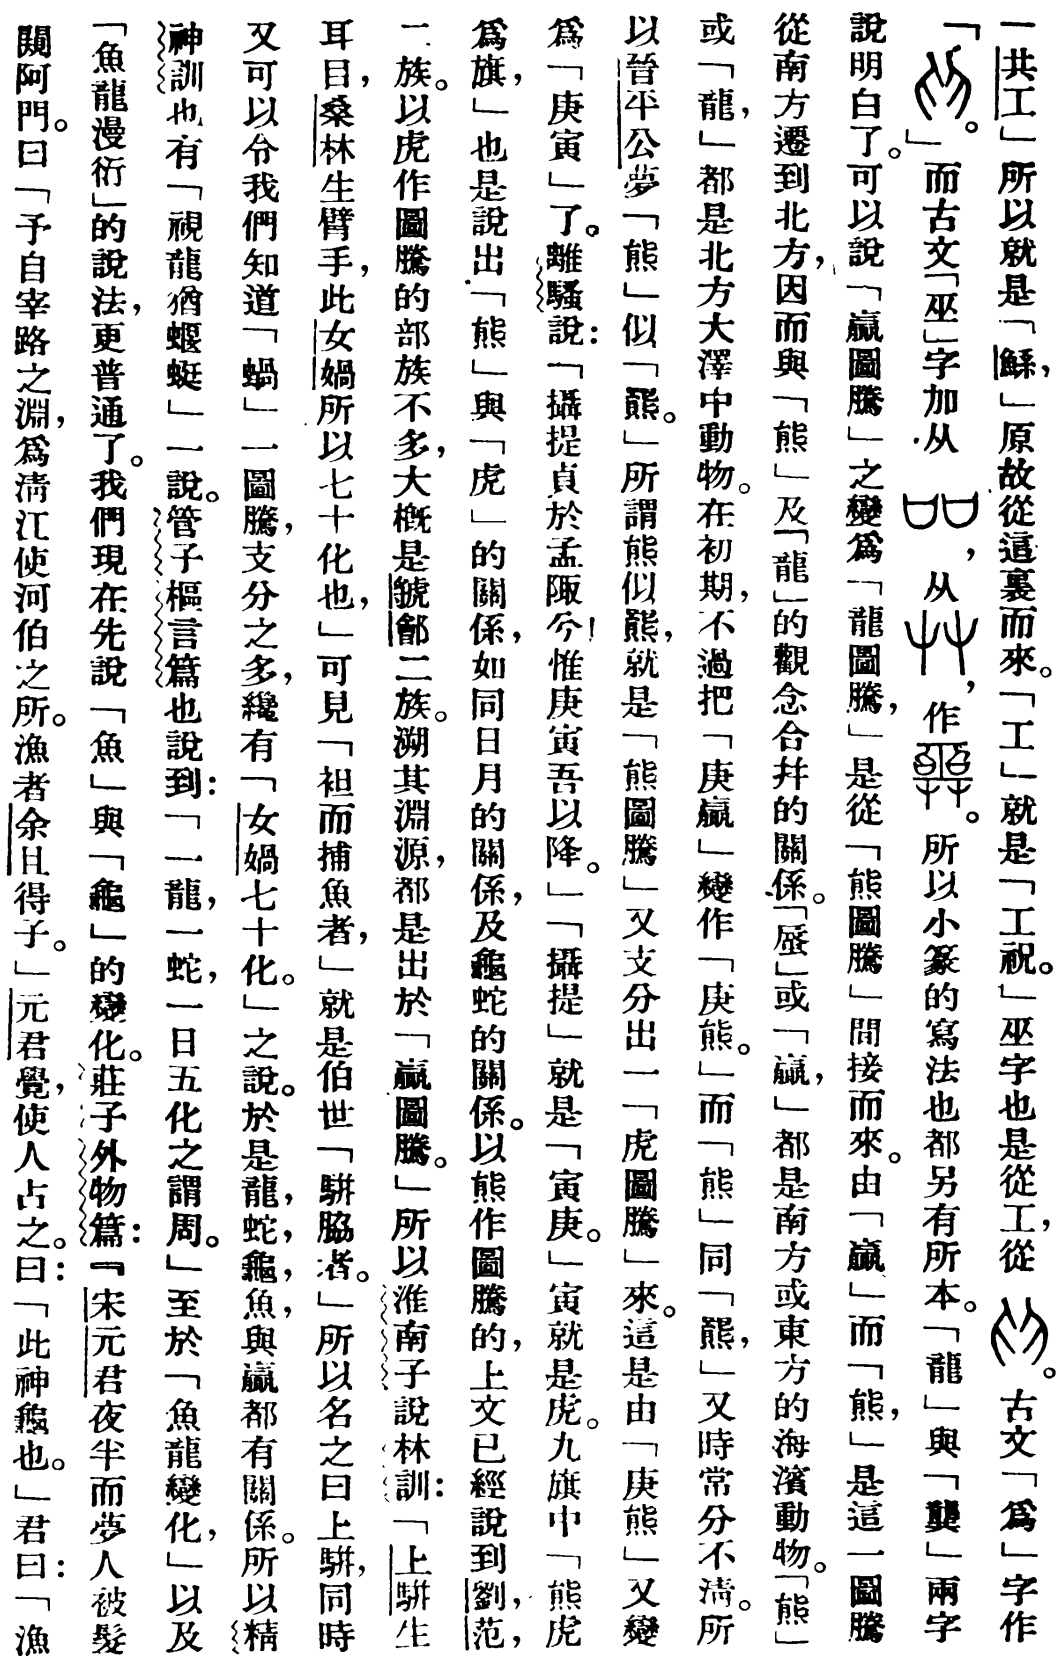 一共工」所以就是「鯀，」原故從這裏而來。「工」就是「工祝。」巫字也是從工，從　。古文「爲」字作
「　。」而古文「巫」字加从　，从　，作　。所以小篆的寫法也都另有所本。「龍」與「龏」兩字
說明白了。可以說「嬴圖騰」之變爲「龍圖騰，」是從「熊圖騰」間接而來。由「嬴」而「熊，」是這一圖騰
從南方遷到北方，因而與「熊」及「龍」的觀念合幷的關係。「蜃」或「嬴，」都是南方或東方的海濱動物。「熊」
或「龍，」都是北方大澤中動物。在初期，不過把「庚嬴」變作「庚熊。」而「熊」同「羆，」又時常分不淸。所
以晉平公夢「熊」似「羆。」所謂熊似羆，就是「熊圖騰」又支分出一「虎圖騰」來。這是由「庚熊」又變
爲「庚寅」了。離騷說：「攝提貞於孟陬兮！惟庚寅吾以降。」「攝提」就是「寅庚。」寅就是虎。九旗中「熊虎
爲旗，」也是說出「熊」與「虎」的關係，如同日月的關係，及龜蛇的關係。以熊作圖騰的，上文已經說到劉，范，
二族。以虎作圖騰的部族不多，大概是虢鄶二族。溯其淵源，都是出於「嬴圖騰。」所以淮南子說林訓：「上駢生
耳目，桑林生臂手，此女媧所以七十化也，」可見「袒而捕魚者，」就是伯世「駢脇者。」所以名之曰上駢，同時
又可以令我們知道「蝸」一圖騰，支分之多，纔有「女媧七十化。」之說。於是龍，蛇，龜，魚，與嬴都有關係。所以精
神訓也有「視龍猶蝘蜓」一說。管子樞言篇也說到：「一龍，一蛇，一日五化之謂周。」至於「魚龍變化，」以及
「魚龍漫衍」的說法，更普通了。我們現在先說「魚」與「龜」的變化。莊子外物篇：『宋元君夜半而夢人被髮
闚阿門。曰「予自宰路之淵，爲淸江使河伯之所。漁者余且得予。」元君覺，使人占之。曰：「此神龜也。」君曰：「漁